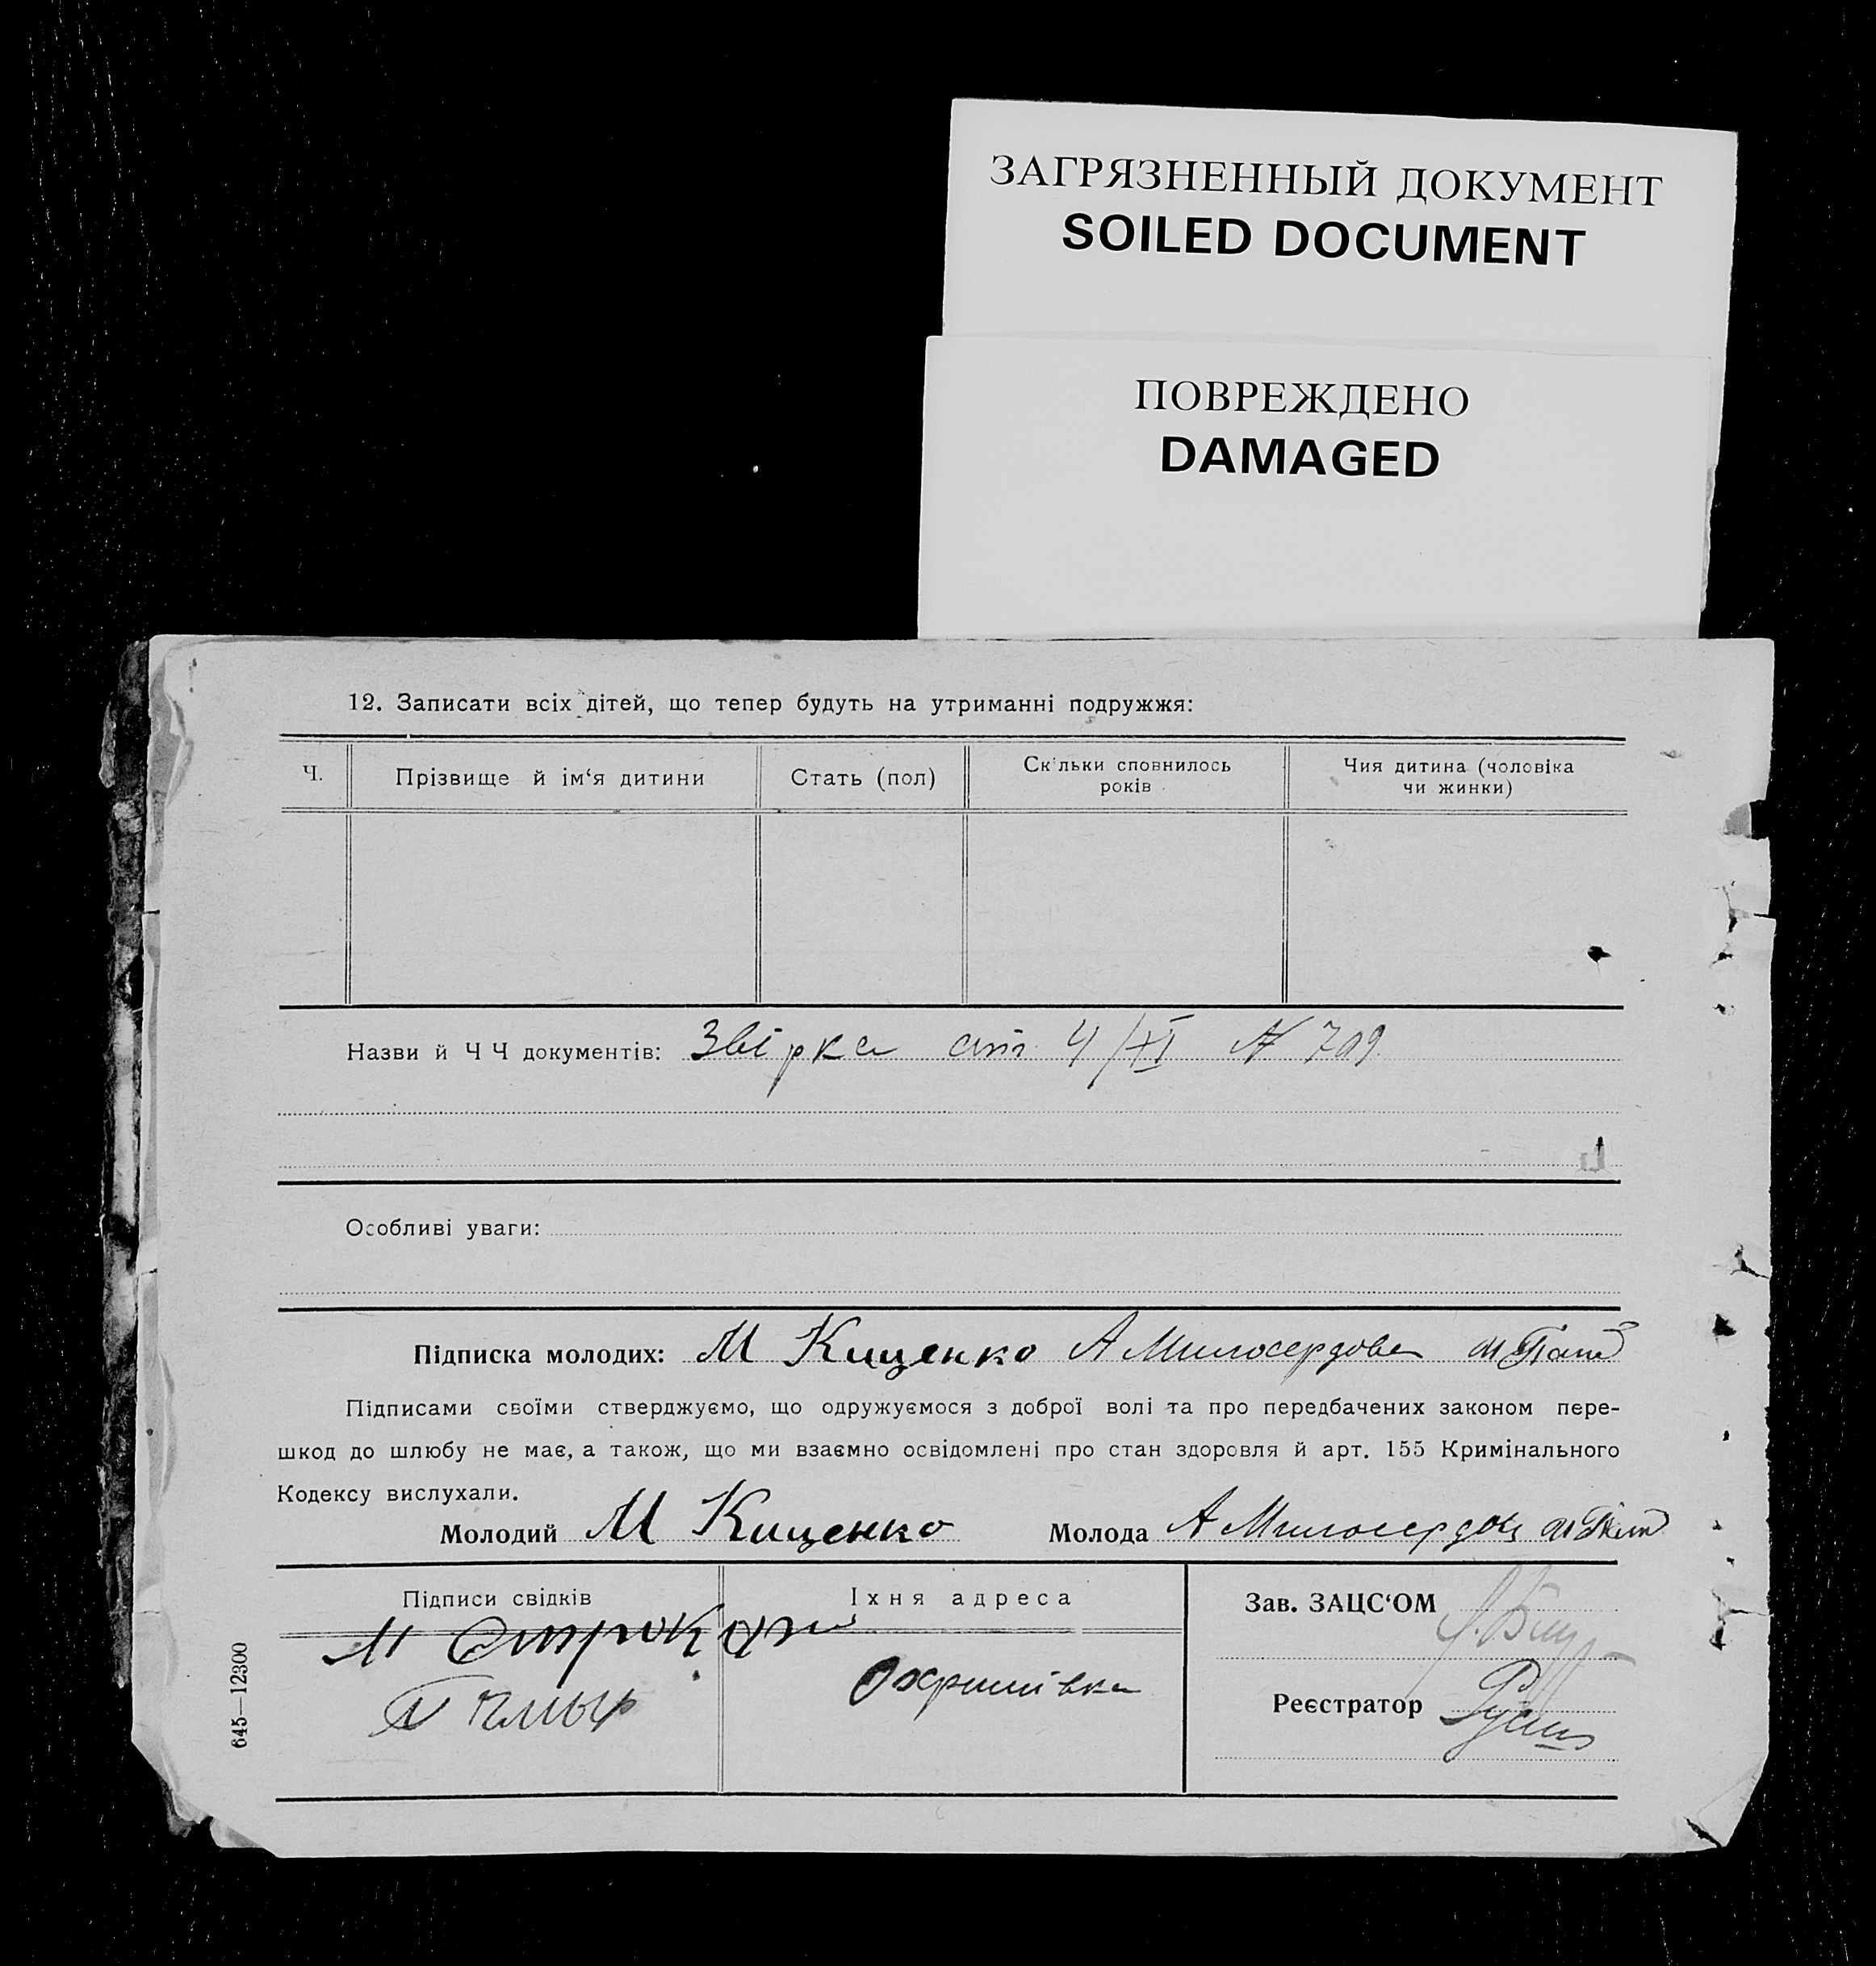 ЗАГРЯЗНЕННЫЙ ДОКУМЕНТ
SOILED DOCUMENT
ПОВРЕЖДЕНО
DAMAGED
12. Записати всіх дітей, що тепер будуть на утриманні подружжя:
Ч. Прізвище й ім‘я дитини Стать (пол) Скільки сповнилось років Чия дитина (чоловіка чи жинки)
Назви й Ч Ч документів: Звірка 4/XI № 709
Особливі уваги:
Підписка молодих: М Кищенко А Милосердова
Підписами своїми стверджуємо, що одружуємося з доброї волі та про передбачених законом пере-
шкод до шлюбу не має, а також, що ми взаємно освідомлені про стан здоровля й арт. 155 Кримінального
Кодексу вислухали.
Молодий М Кищенко Молода А Милосердов
Підписи свідків Їхня адреса Зав. ЗАЦС‘ОМ
М
Охримівка
Реєстратор
645—12300